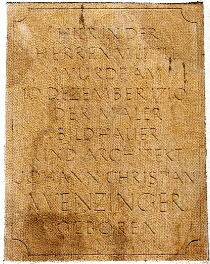 HIER IN DER
HERRENMÜHLE
WURDE AM
10 DEZEMBER 1710
DER MALER
BILDHAUER
UND ARCHITEKT
JOHANN CHRISTIAN
WENZINGER
GEBOREN